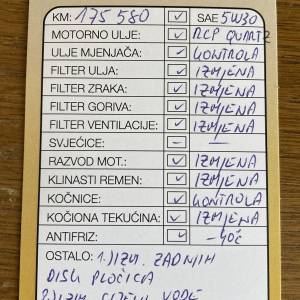 KM: 175 580 ✓ SAE 5W30
MOTORNO ULJE: ✓ RCP QUARTZ
ULJE MJENJAČA: ✓ KONTROLA
FILTER ULJA: ✓ IZMJENA
FILTER ZRAKA: ✓ IZMJENA
FILTER GORIVA: ✓ IZMJENA
FILTER VENTILACIJE: ✓ IZMJENA
SVJEĆICE: – –
RAZVOD MOT.: ✓ IZMJENA
KLINASTI REMEN: ✓ IZMJENA
KOČNICE: ✓ KONTROLA
KOČIONA TEKUĆINA: ✓ IZMJENA
ANTIFRIZ: ✓ -40°C
OSTALO: 1.) IZM. ZADNJIH
DISK PLOČICA
2.) IZM. VODE